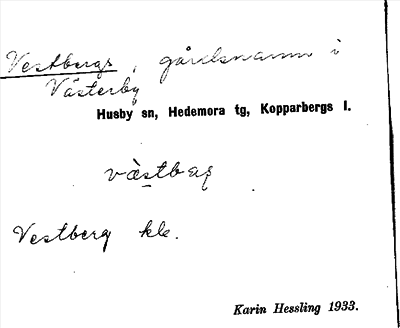 Vestbergs, gårdsnamn i
Västerby
Husby sn, Hedemora tg, Kopparbergs l.
Vestberg kle.
Karin Hessling 1933.